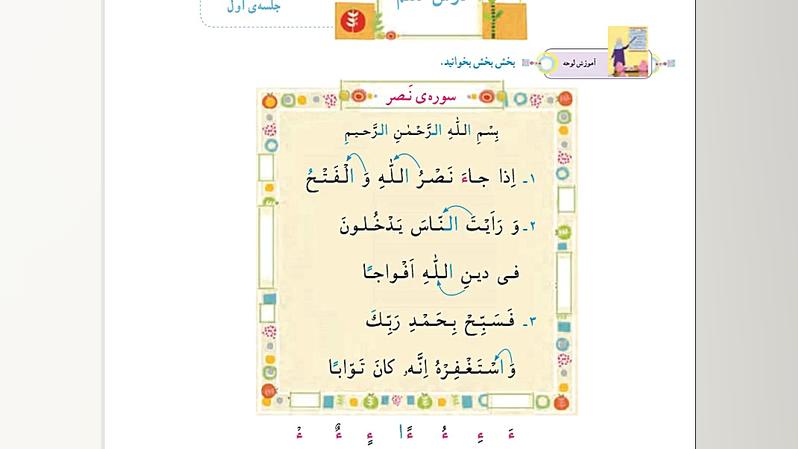 جلسه‌ی اول
آموزش لوحه
بخش بخش بخوانید.
سوره‌ی نَصر
بِسْمِ اللّٰهِ الرَّحْمٰنِ الرَّحیمِ
۱ـ اِذا جاءَ نَصْرُ اللّٰهِ وَ الْفَتْحُ
۲ـ وَ رَاَیْتَ النّاسَ یَدْخُلونَ
فی دینِ اللّٰهِ اَفْواجًا
۳ـ فَسَبِّحْ بِحَمْدِ رَبِّكَ
وَ اسْتَغْفِرْهُ اِنَّهُ کانَ تَوّابًا
ءَ ءِ ءُ ءًا ءٍ ءٌ ءْ